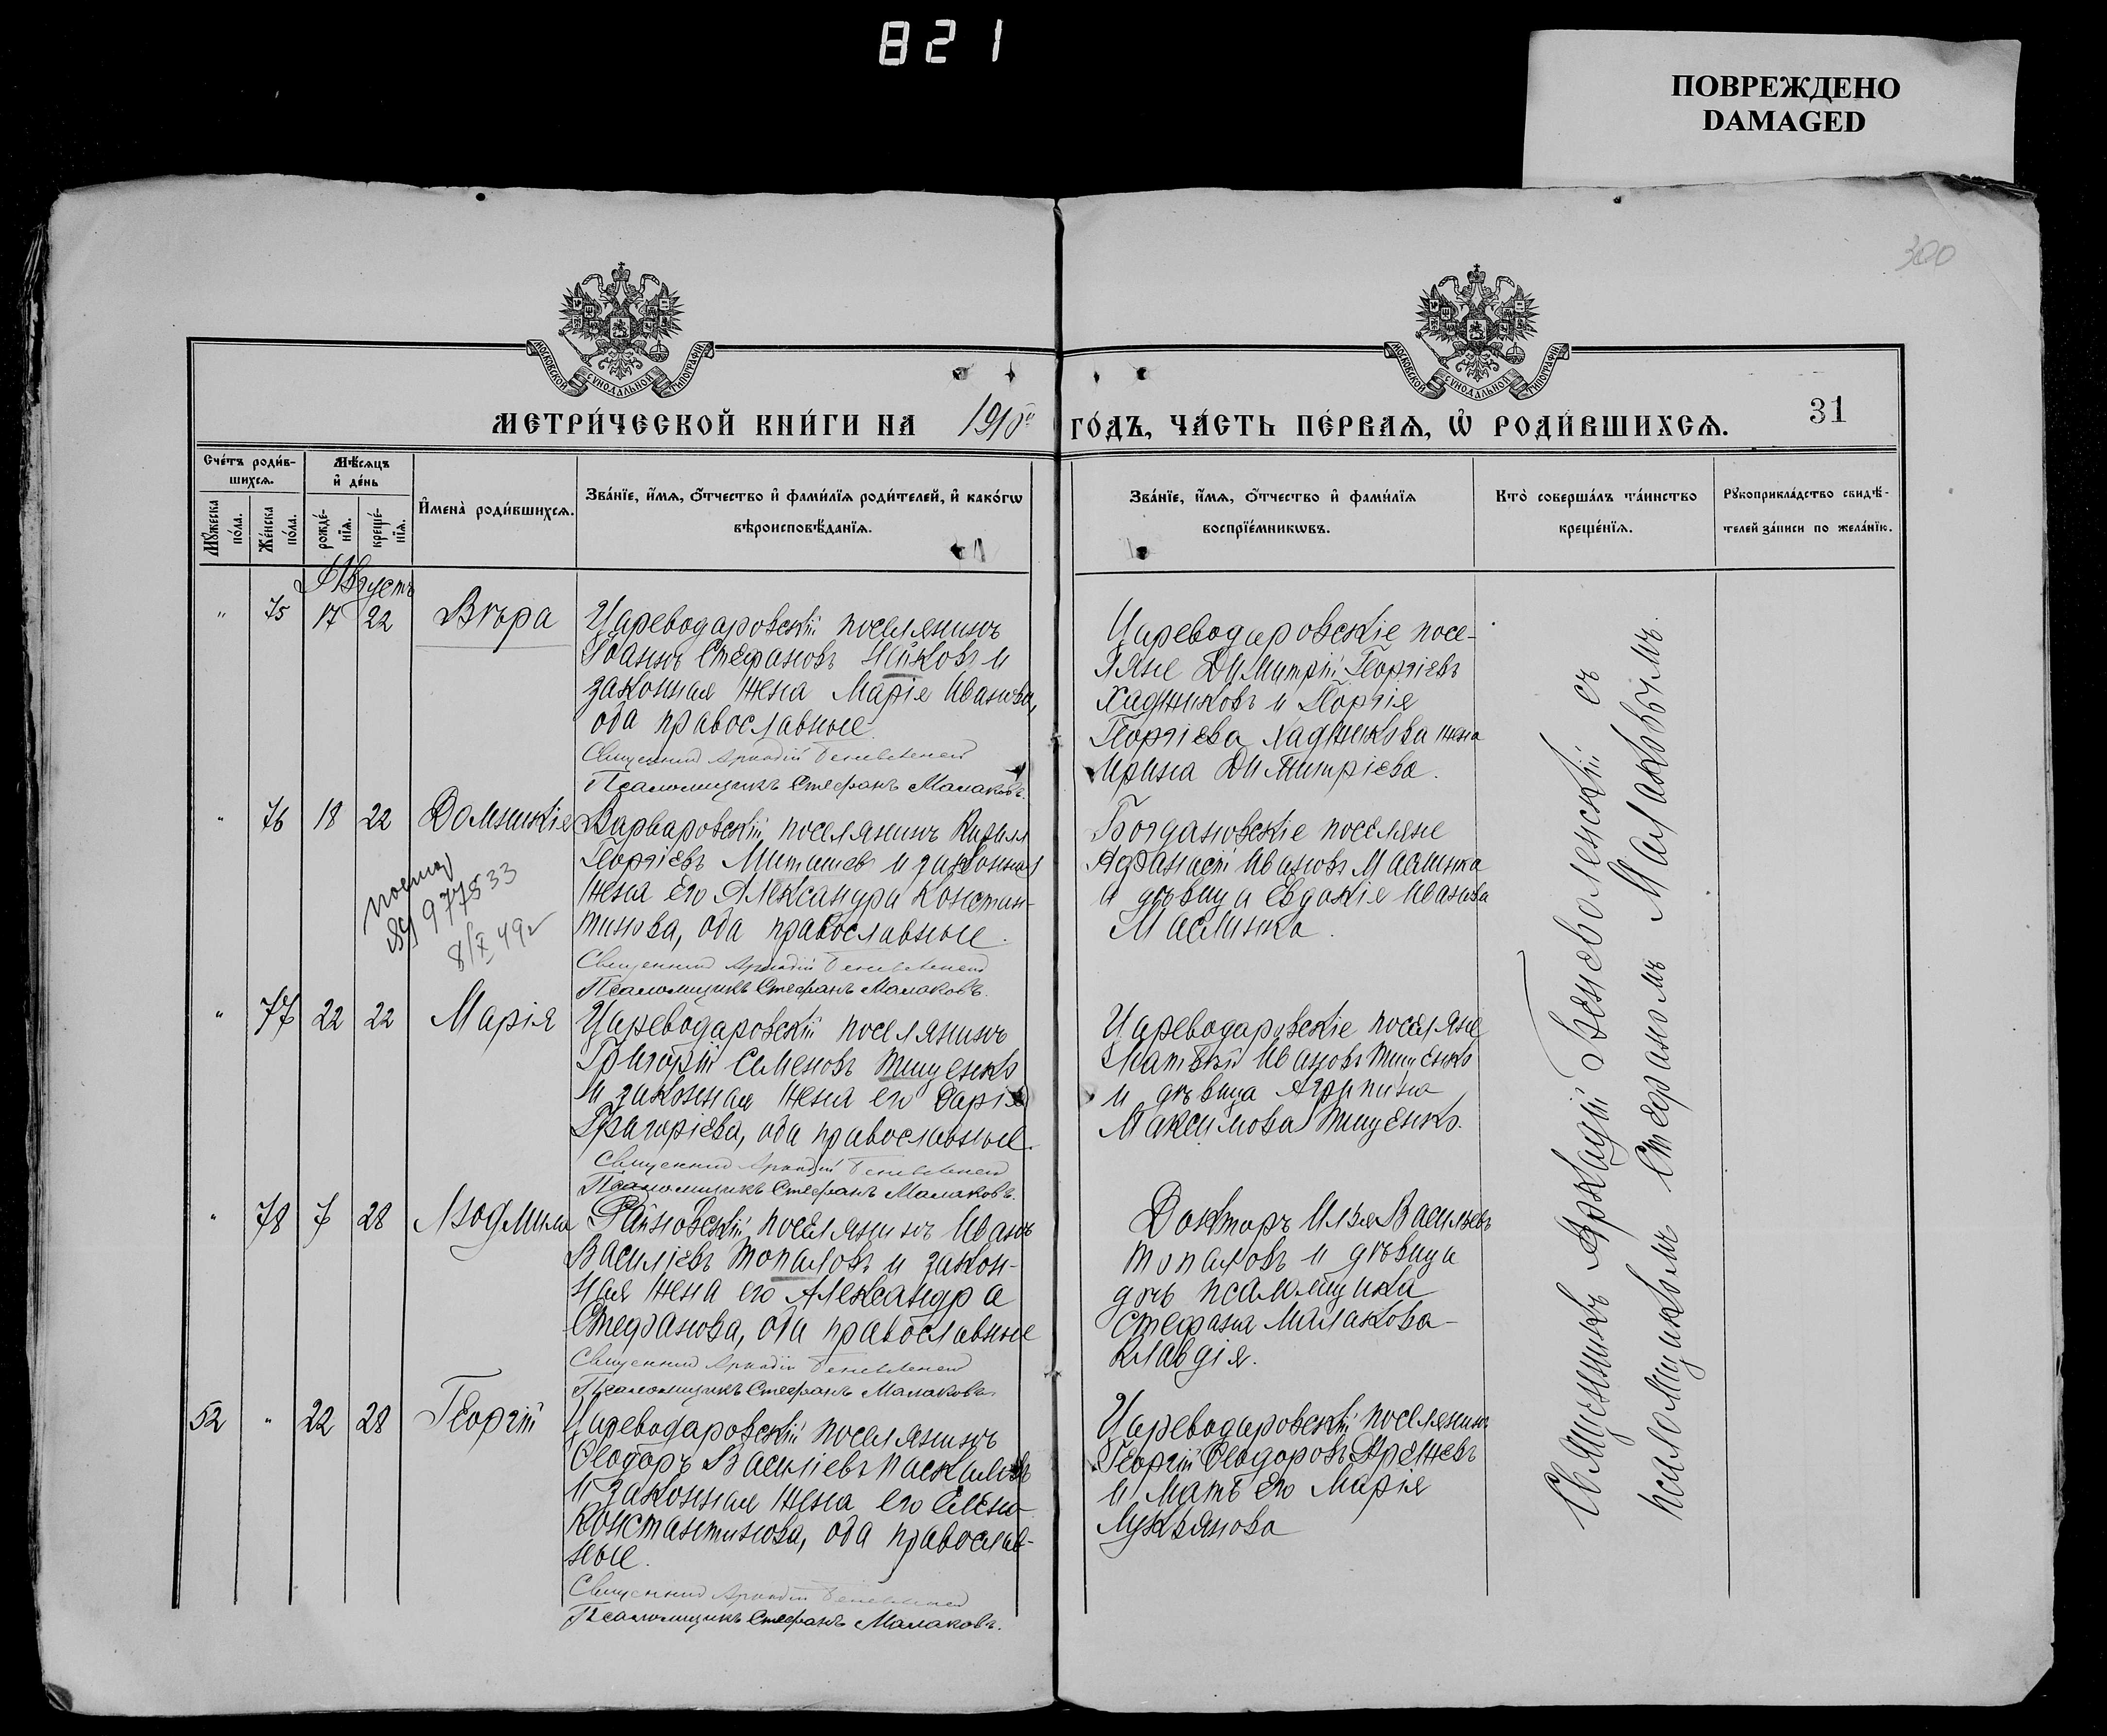 821
ПОВРЕЖДЕНО
DAMAGED
300
МОСКОВСКОЙ СѴНОДАЛЬНОЙ ТИПОГРАФІИ
МОСКОВСКОЙ СѴНОДАЛЬНОЙ ТИПОГРАФІИ
МЕТРИ́ЧЕСКОЙ КНИ́ГИ НА 1910й ГО́ДЪ, ЧА́СТЬ ПЕ́РВАѦ, Ѡ РОДИ́ВШИХСѦ.
31
Сче́тъ роди́в-
шихсѧ.
Мѣ́сѧцъ
и҆ де́нь
Мꙋ́жеска
по́ла.
Же́нска
по́ла.
рожде́-
нїѧ.
креще́-
нїѧ.
И҆мена̀ роди́вшихсѧ.
Зва́нїе, и҆́мѧ, ѻ҆́тчество и҆ фами́лїѧ роди́телей, и҆ како́гѡ
вѣроисповѣ́данїѧ.
Зва́нїе, и҆́мѧ, ѻ҆́тчество и҆ фами́лїѧ
воспрїе́мникѡвъ.
Кто̀ соверша́лъ та́инство
креще́нїѧ.
Рꙋкоприкла́дство свидѣ́-
телей за́писи по жела́нїю.
Августъ
" 75 17 22 Вѣра
Цареводаровскій поселянинъ
Іоаннъ Стефановъ Нейковъ и
законная жена Марія Иванова,
оба православные.
Священникъ Аркадій Беневоленскій
Псаломщикъ Стефанъ Малаковъ.
Цареводаровскіе посе-
ляне Димитрій Георгіевъ
Хаджиковъ и Георгія
Георгіева Хаджикова жена
Ирина Димитріева.
" 76 18 22 Домникія
Варваровскій поселянинъ Кирилл
Георгіевъ Миташевъ и законная
жена его Александра Констан-
тинова, оба православные.
Священникъ Аркадій Беневоленскій
Псаломщикъ Стефанъ Малаковъ.
Богдановскіе поселяне
Афанасій Ивановъ Маслинка
и дѣвица Евдокія Иванова
Маслинка.
977533
8/X 49г
" 77 22 22 Марія
Цареводаровскій поселянинъ
Григорій Семеновъ Тищенко
и законная жена его Дарія
Григоріева, оба православные.
Священникъ Аркадій Беневоленскій
Псаломщикъ Стефанъ Малаковъ.
Цареводаровскіе поселяне
Матвѣй Ивановъ Тищенко
и дѣвица Агрипина
Максимова Тищенко.
" 78 7 28 Людмила
Райновскій поселянинъ Иванъ
Василіевъ Топаловъ и закон-
ная жена его Александра
Стефанова, оба православные
Священникъ Аркадій Беневоленскій
Псаломщикъ Стефанъ Малаковъ.
Докторъ Илья Васильевъ
Топаловъ и дѣвица
дочь псаломщика
Стефана Малакова-
Клавдія.
52 " 22 28 Георгій
Цареводаровскій поселянинъ
Ѳеодоръ Василіевъ Паскаловъ
и законная жена его Елена
Константинова, оба православ-
ные.
Священникъ Аркадій Беневоленскій
Псаломщикъ Стефанъ Малаковъ.
Цареводаровскій поселянинъ
Георгій Ѳеодоровъ
и мать его Марія
Лукьянова
Священникъ Аркадій Беневоленскій съ
псаломщикомъ Стефаномъ Малаковымъ.